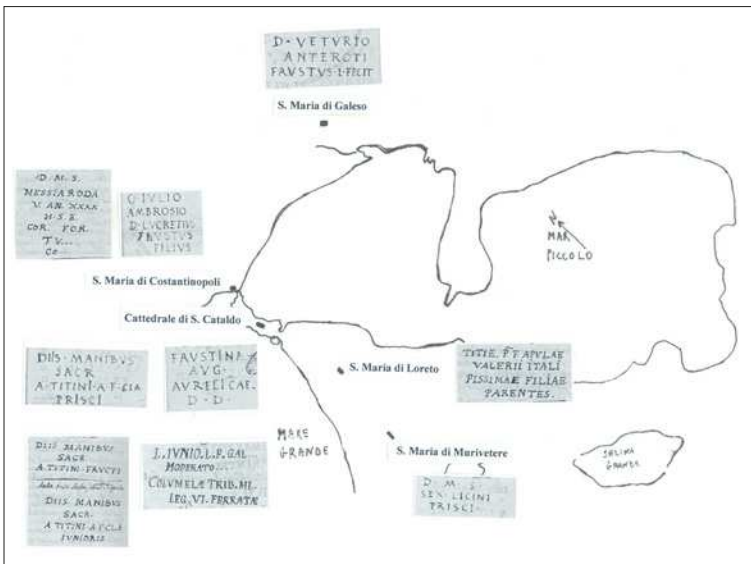 D · VETVRIO
ANTEROTI
FAVSTVS · L · FECIT
S. Maria di Galeso
D. M. S.
MESSIA RODA
V. AN. XXXX
H. S. E.
COR. FOR.
TV...
CO...
IVLIO
AMBROSIO
D · LVCRETIVS
FAVSTVS
FILIVS
N
MAR
PICCOLO
S. Maria di Costantinopoli
Cattedrale di S. Cataldo
DIIS · MANIBVS
SACR
A · TITINI · A · F · CLA
PRISCI
FAVSTINA
AVG ·
AVRELI CAE.
D · D ·
S. Maria di Loreto
TITIE. P. F APVLAE
VALERII ITALI
PISSIMAE FILIAE
PARENTES.
DIIS MANIBVS
SACR
A. TITINI · FRVCTI
DIIS MANIBVS
SACR.
A TITINI · A F · CLA
IVNIORIS
L. IVNIO. L. F. GAL
MODERATO...
COLVMELÆ TRIB. MIL.
LEG. VI. FERRATÆ
MARE
GRANDE
S. Maria di Murivetere
D. M. S.
SEX LICINI
PRISCI ·
SALINA
GRANDE